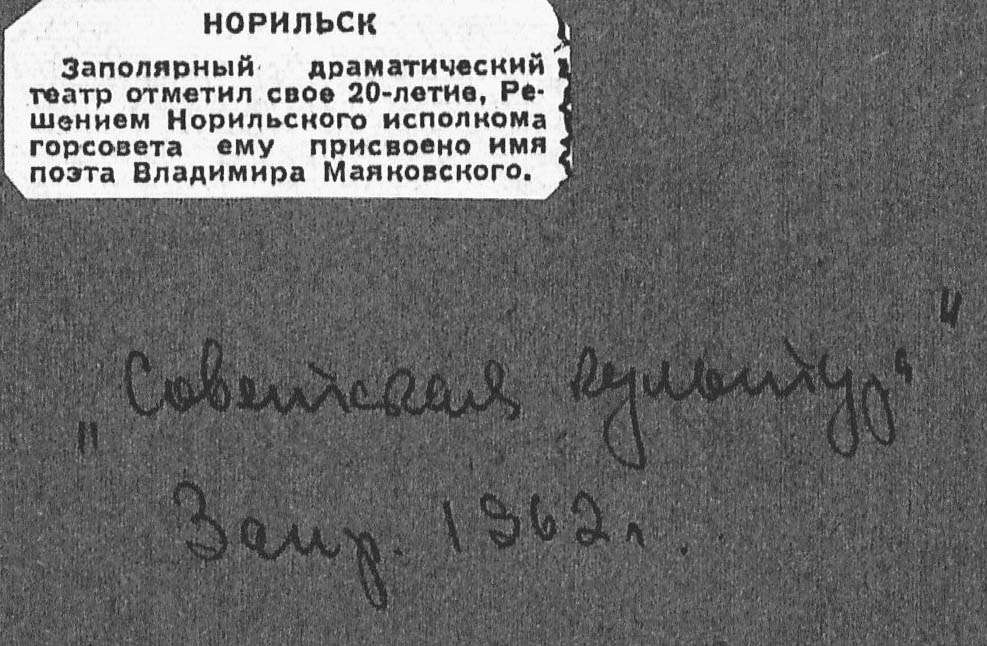 НОРИЛЬСК
Заполярный драматический
театр отметил свое 20-летие, Ре-
шением Норильского исполкома
горсовета ему присвоено имя
поэта Владимира Маяковского.
„Советская культура"
3 апр. 1962 г.